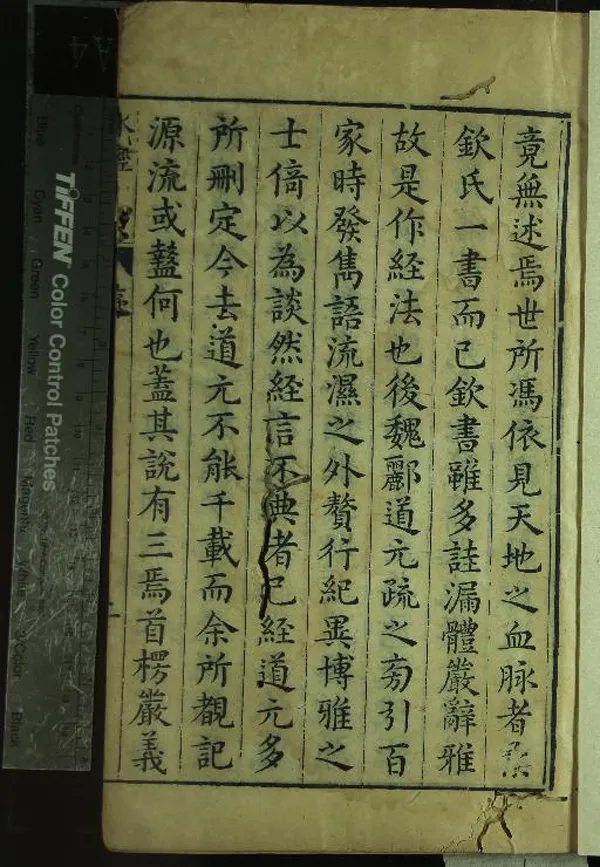 竟無述焉世所馮依見天地之血脉者
欽氏一書而已欽書雖多詿漏體嚴辭雅
故是作経法也後魏酈道元疏之旁引百
家時發雋語流濕之外贅行紀異博雅之
士偣以為談然経言不典者已経道元多
所刪定今去道元不能千載而余所覩記
源流或盭何也蓋其說有三焉首楞嚴義
水經
TiFFEN Color Control Patches
Blue
Cyan
Green
Yellow
Red
Magenta
White
3/Color
Black
A4